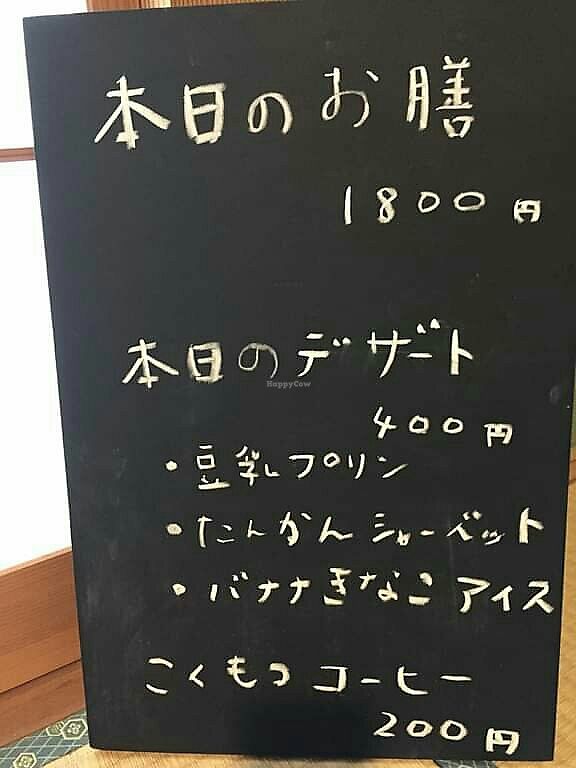 本日のお膳
1800円
本日のデザート
HappyCow
400円
・豆乳プリン
・たんかんシャーベット
・バナナきなこアイス
こくもつコーヒー
200円